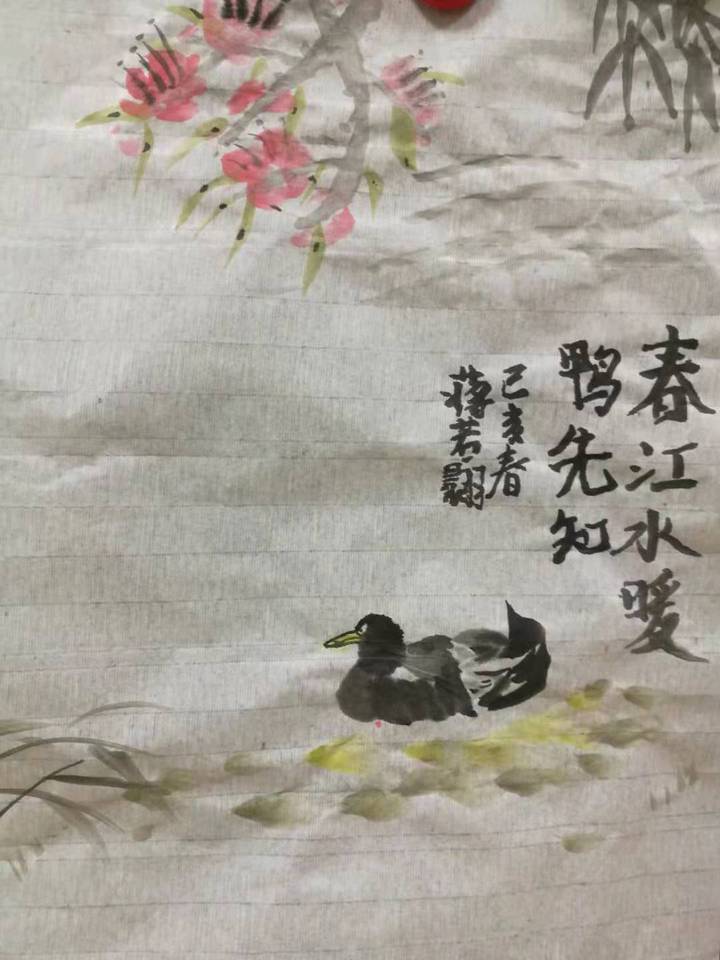 春江水暖
鸭先知
己亥春
蒋若翾